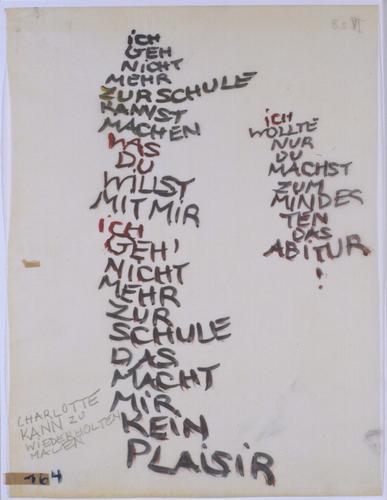 ICH
GEH
NICHT
MEHR
ZUR SCHULE
KANNST
MACHEN
WAS
DU
WILLST
MIT MIR
ICH
GEH'
NICHT
MEHR
ZUR
SCHULE
DAS
MACHT
MIR
KEIN
PLAISIR
ICH
WOLLTE
NUR
DU
MACHST
ZUM
MINDES
TEN
DAS
ABITUR
!
CHARLOTTE
KANN ZU
WIEDERHOLTEN
MALEN
164